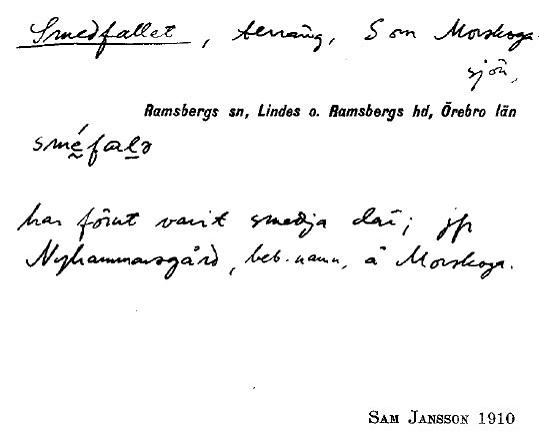 Smedfallet, terräng, S om Morskoga-
sjön,
Ramsbergs sn, Lindes o. Ramsbergs hd, Örebro län
smḛ́fal̲ə
har förut varit smedja där; jfr
Nyhammarsgård, beb.namn, å Morskoga.
SAM JANSSON 1910